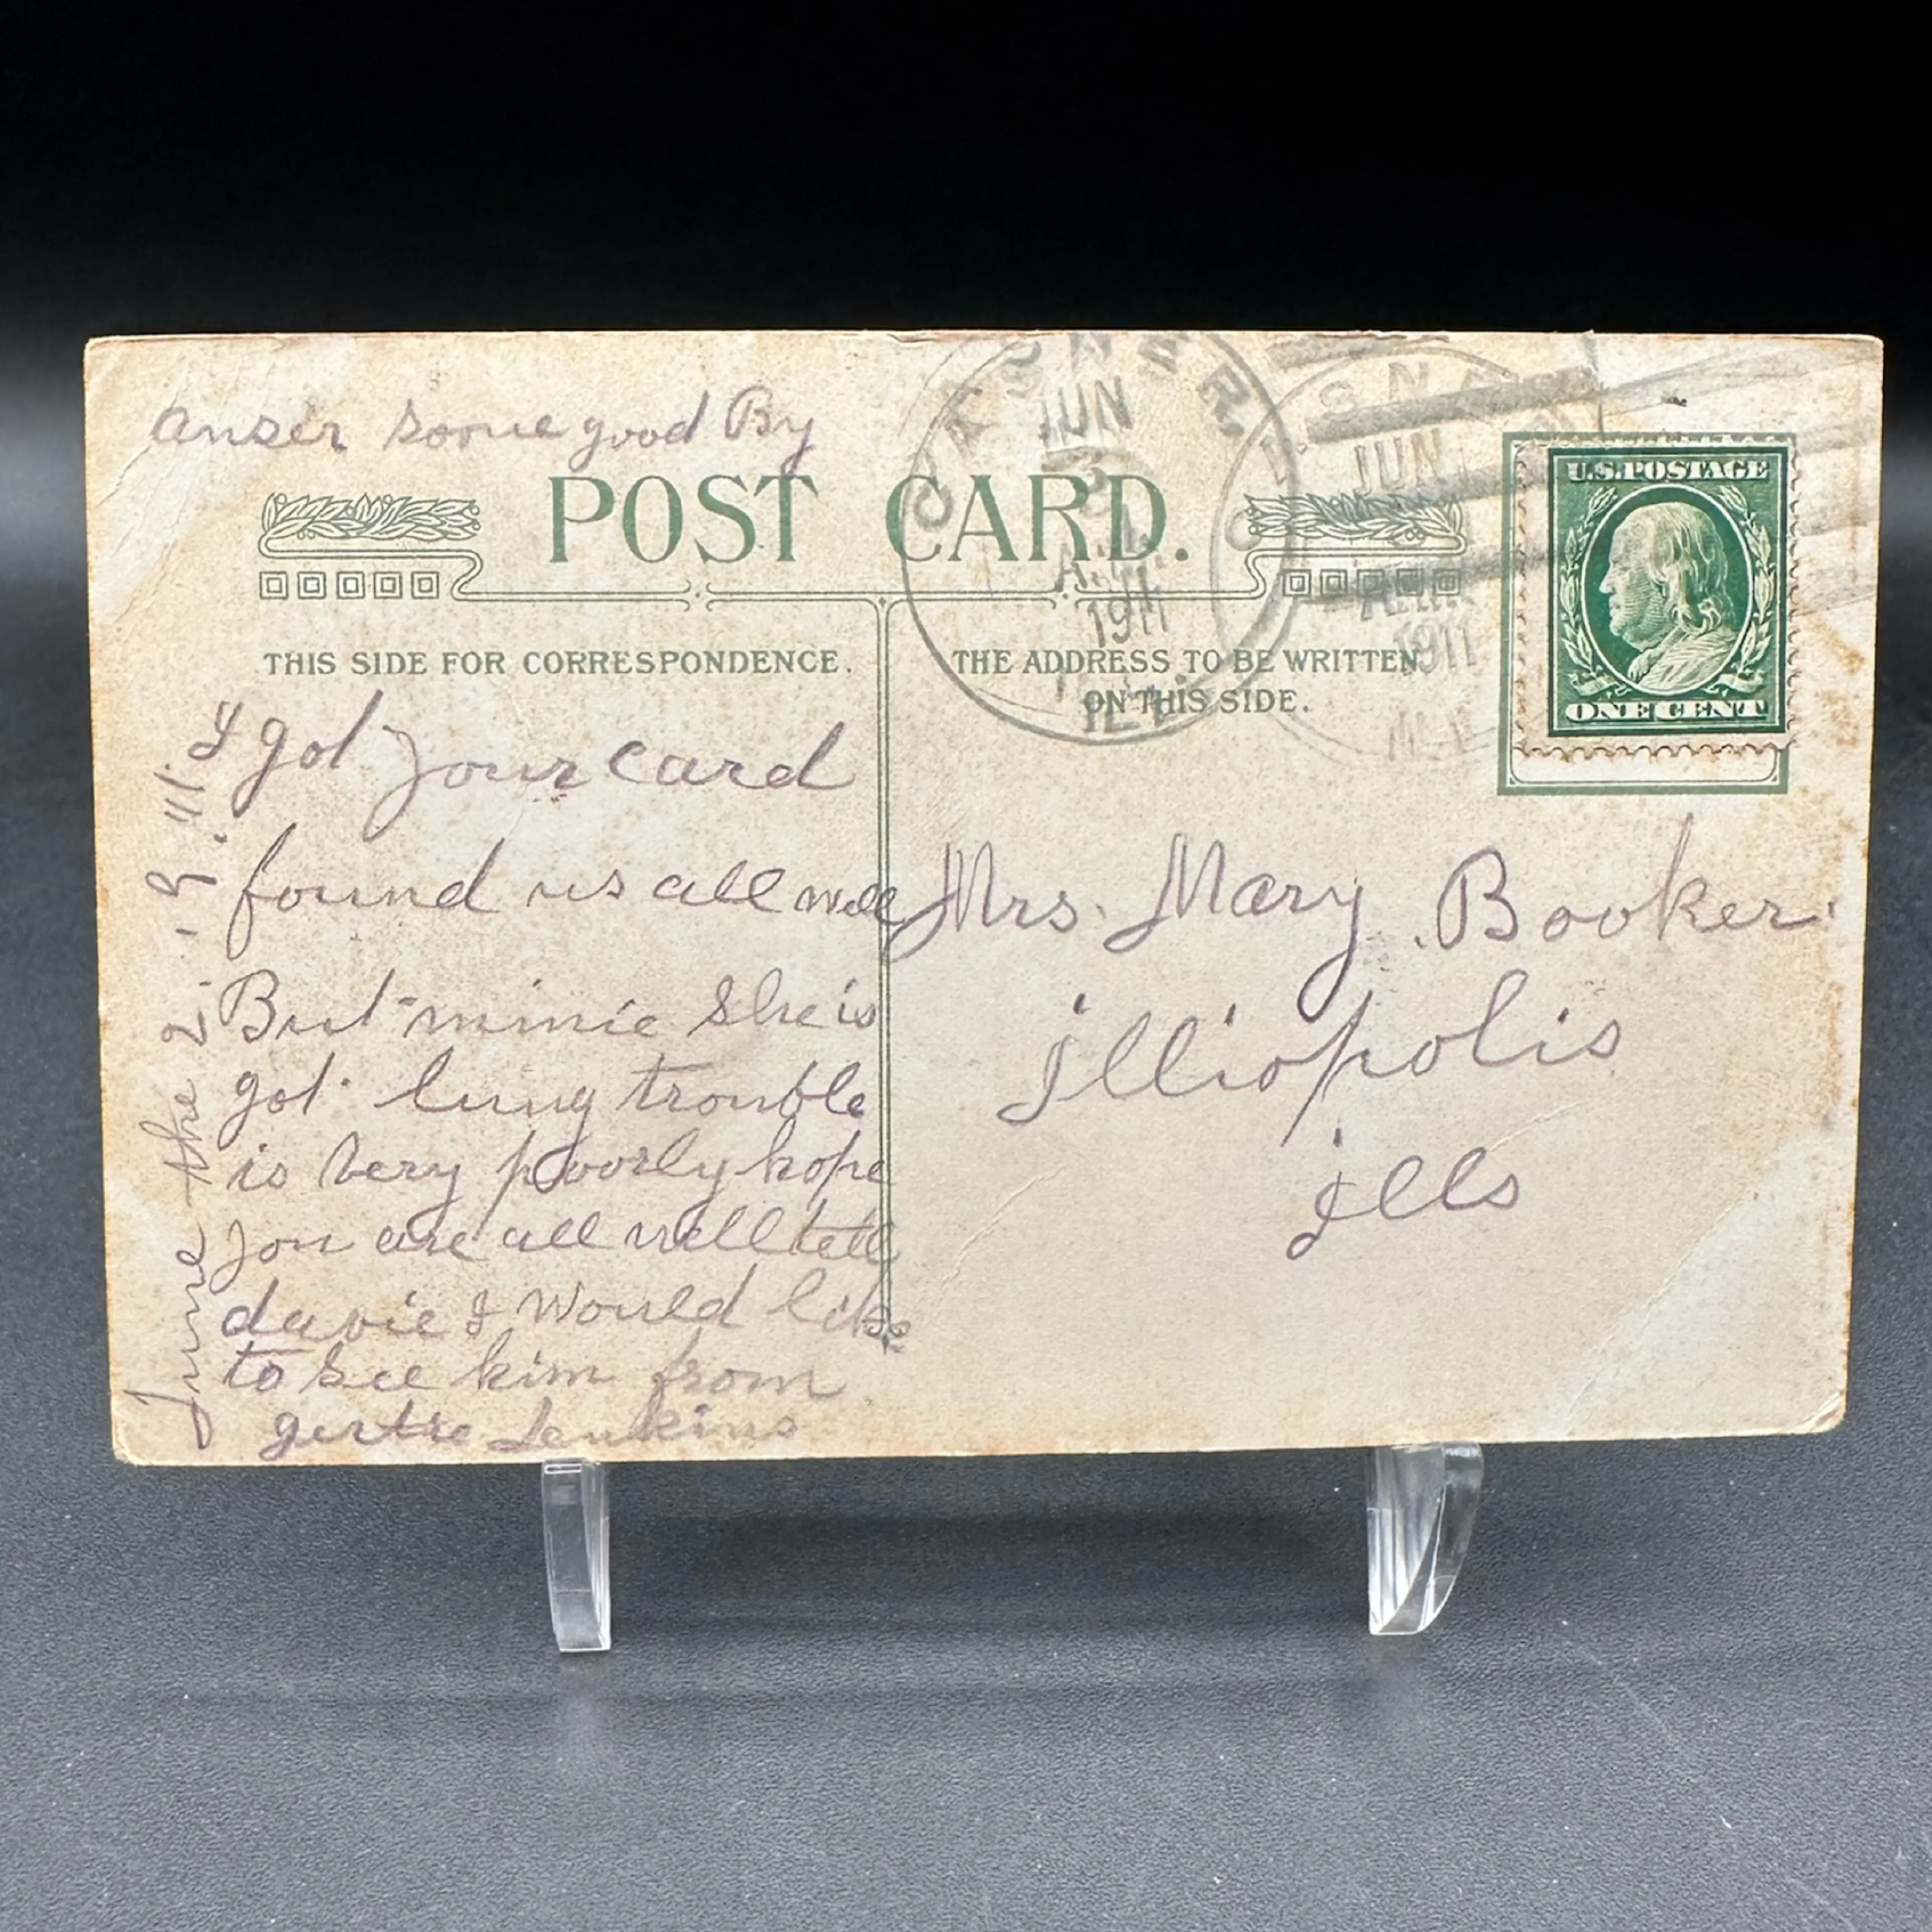 anser soone good By
POST CARD.
THIS SIDE FOR CORRESPONDENCE.
THE ADDRESS TO BE WRITTEN
ON THIS SIDE.
JUN
3
1911
ILL
JUN
1911
U.S. POSTAGE
ONE CENT
June the 2
I got your card
found us all well
But minie she is
got lung trouble
is very poorly hope
you are all well tell
davie I would like
to see him from
gertie Jenkins
Mrs. Mary Booker
illiopolis
ills